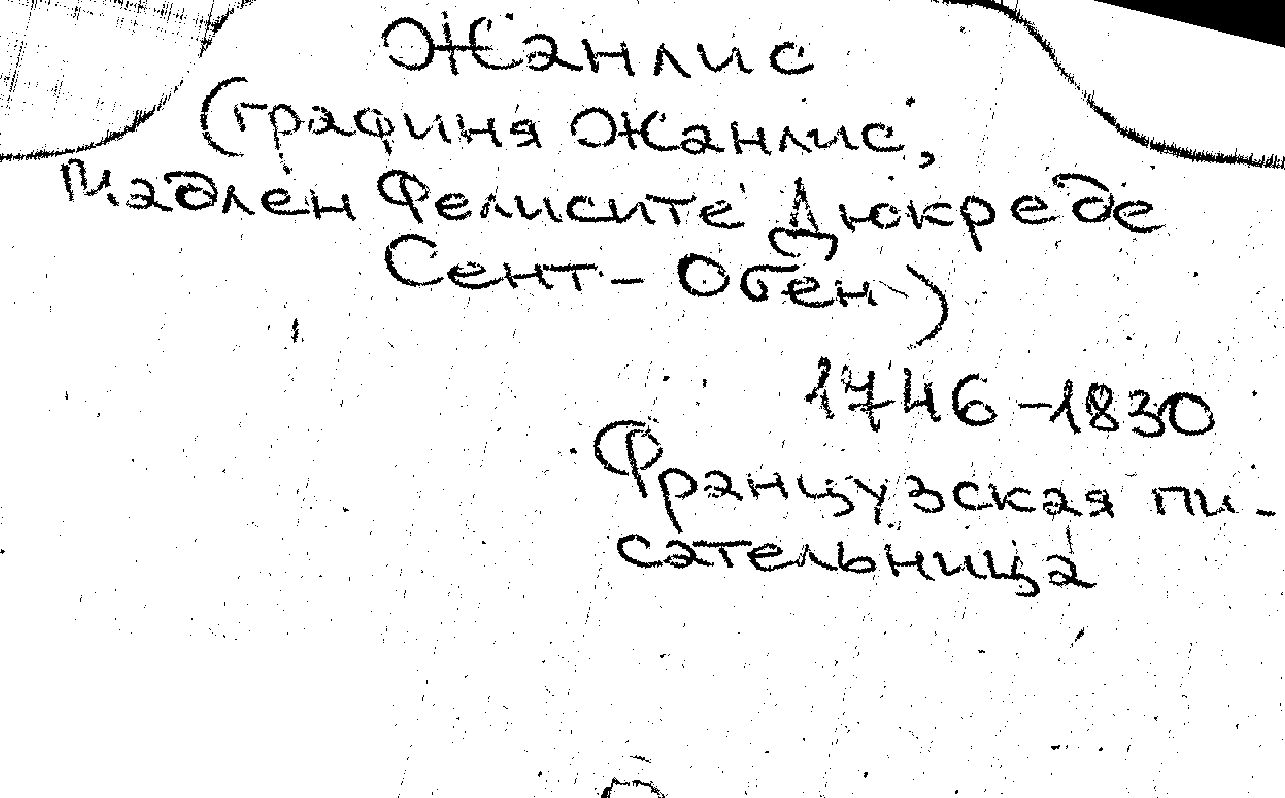 Жанлис
(графиня Жанлис,
Мадлен Фелисите Дюкре де
Сент-Обен)
1746-1830
Французская пи-
сательница